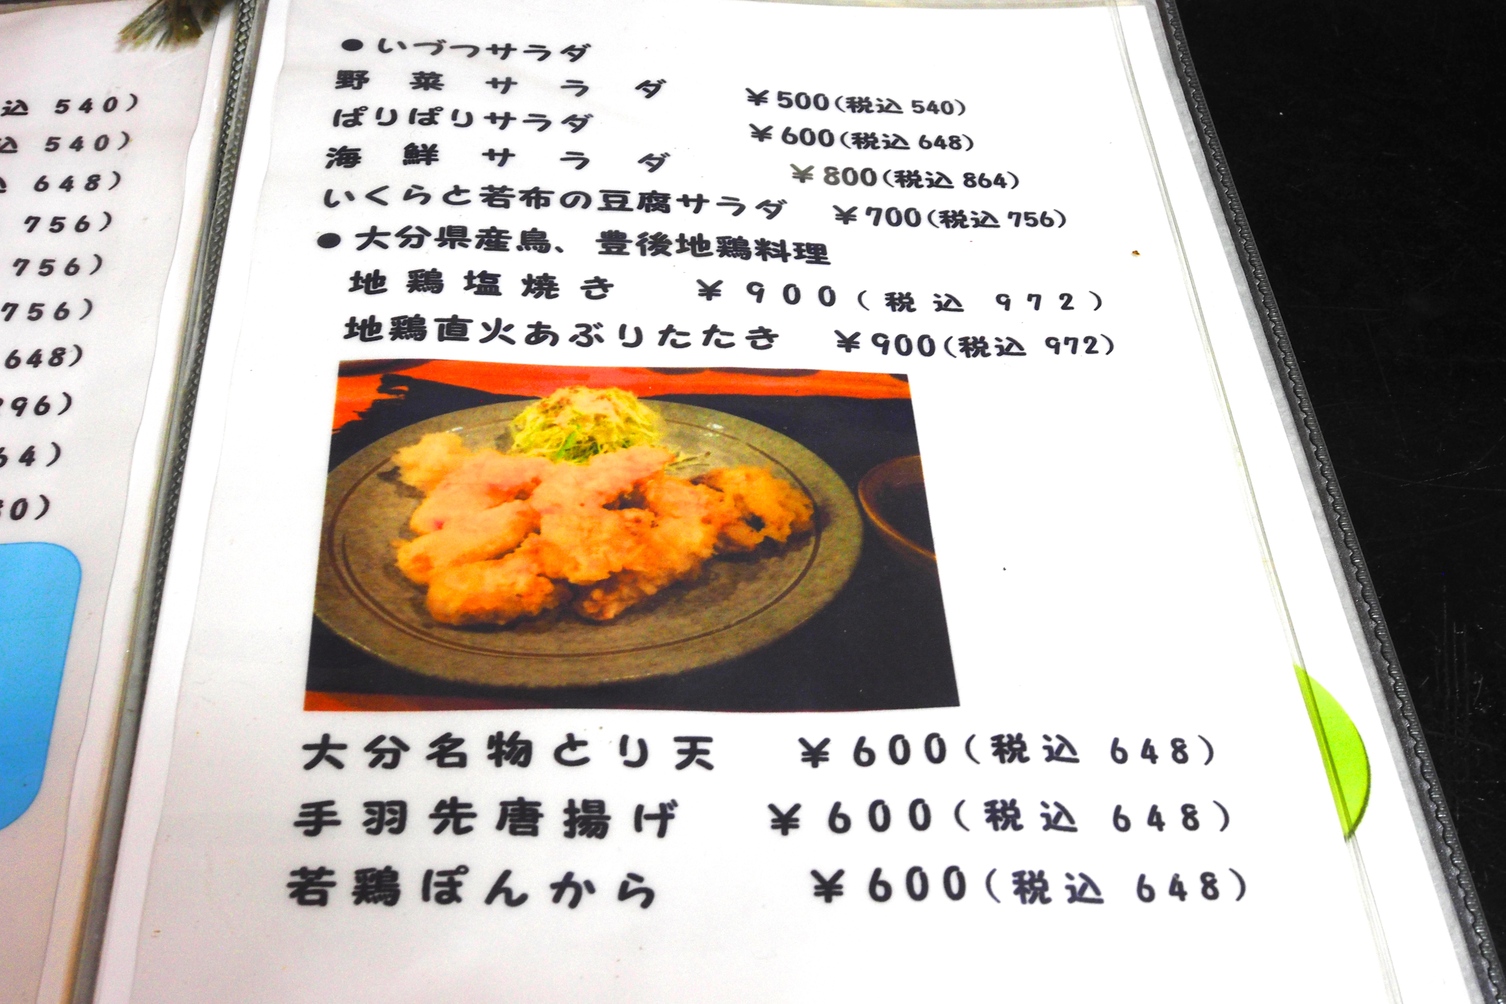 込 540)
込 540)
込 648)
756)
756)
756)
648)
96)
64)
0)
●いづつサラダ
野菜サラダ ¥500(税込 540)
ぱりぱりサラダ ¥600(税込 648)
海鮮サラダ ¥800(税込 864)
いくらと若布の豆腐サラダ ¥700(税込 756)
●大分県産鳥、豊後地鶏料理
地鶏塩焼き ¥900(税込 972)
地鶏直火あぶりたたき ¥900(税込 972)
大分名物とり天 ¥600(税込 648)
手羽先唐揚げ ¥600(税込 648)
若鶏ぽんから ¥600(税込 648)